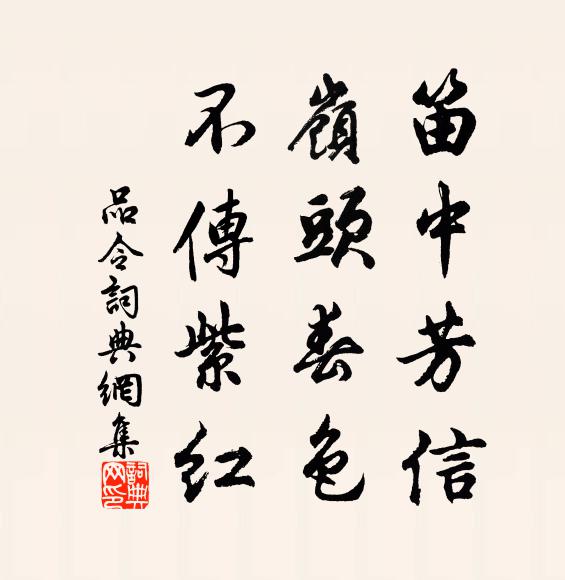 笛中芳信
嶺頭春色
不傳紫紅
品令詞典網集
詞典
网印